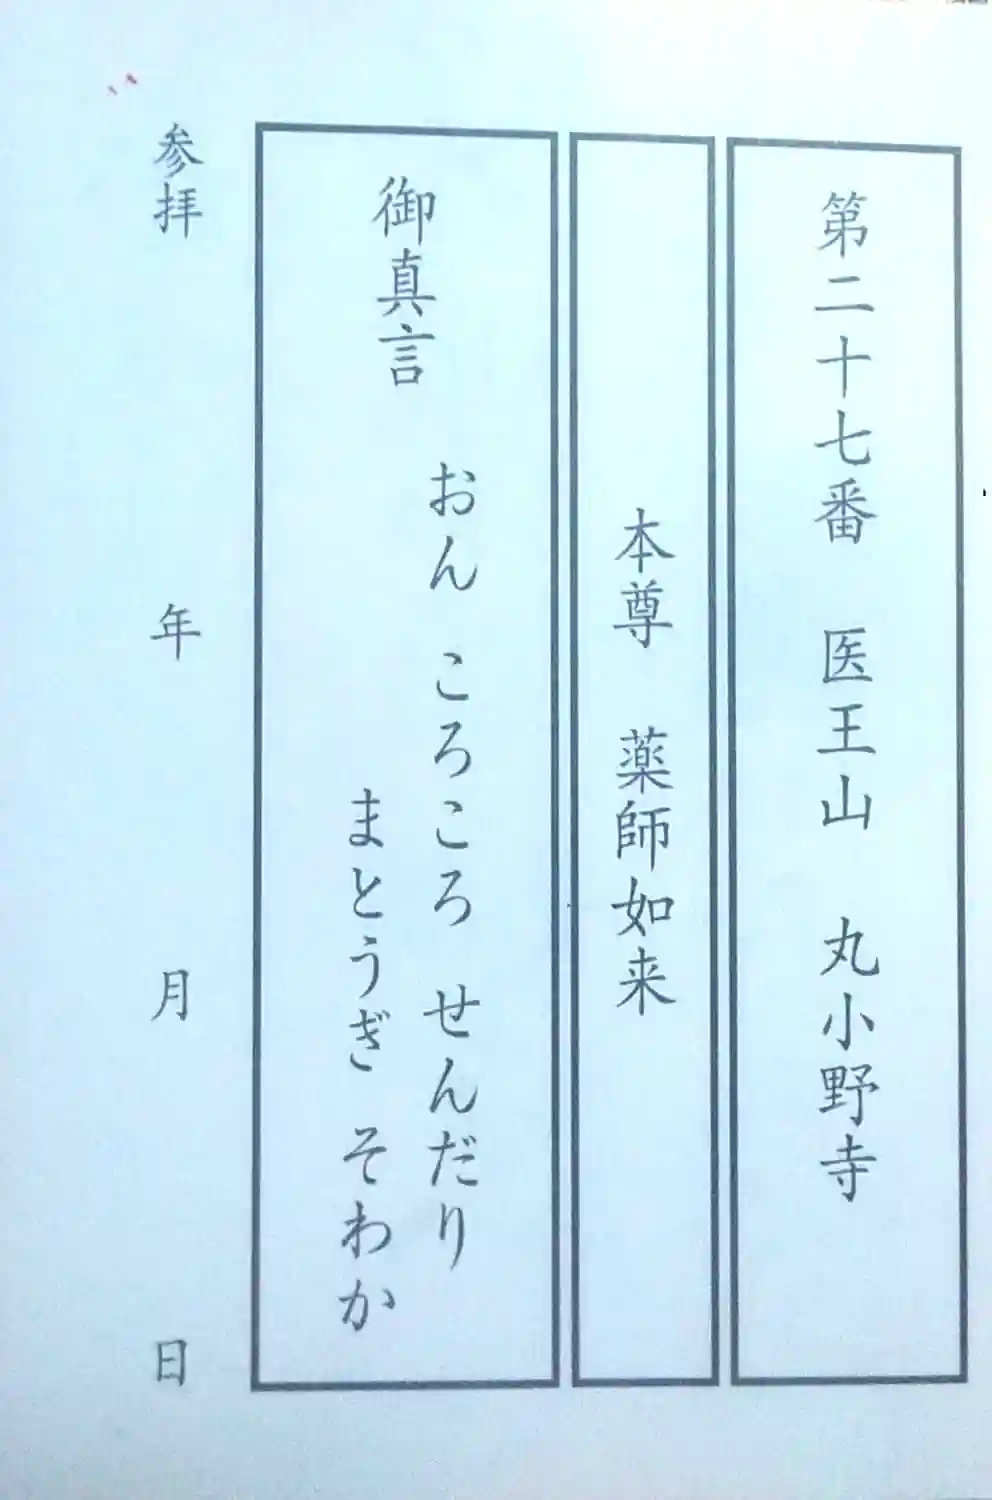 第二十七番　医王山　丸小野寺
本尊　薬師如来
御真言
おん ころころ せんだり
まとうぎ そわか
参拝　年　月　日